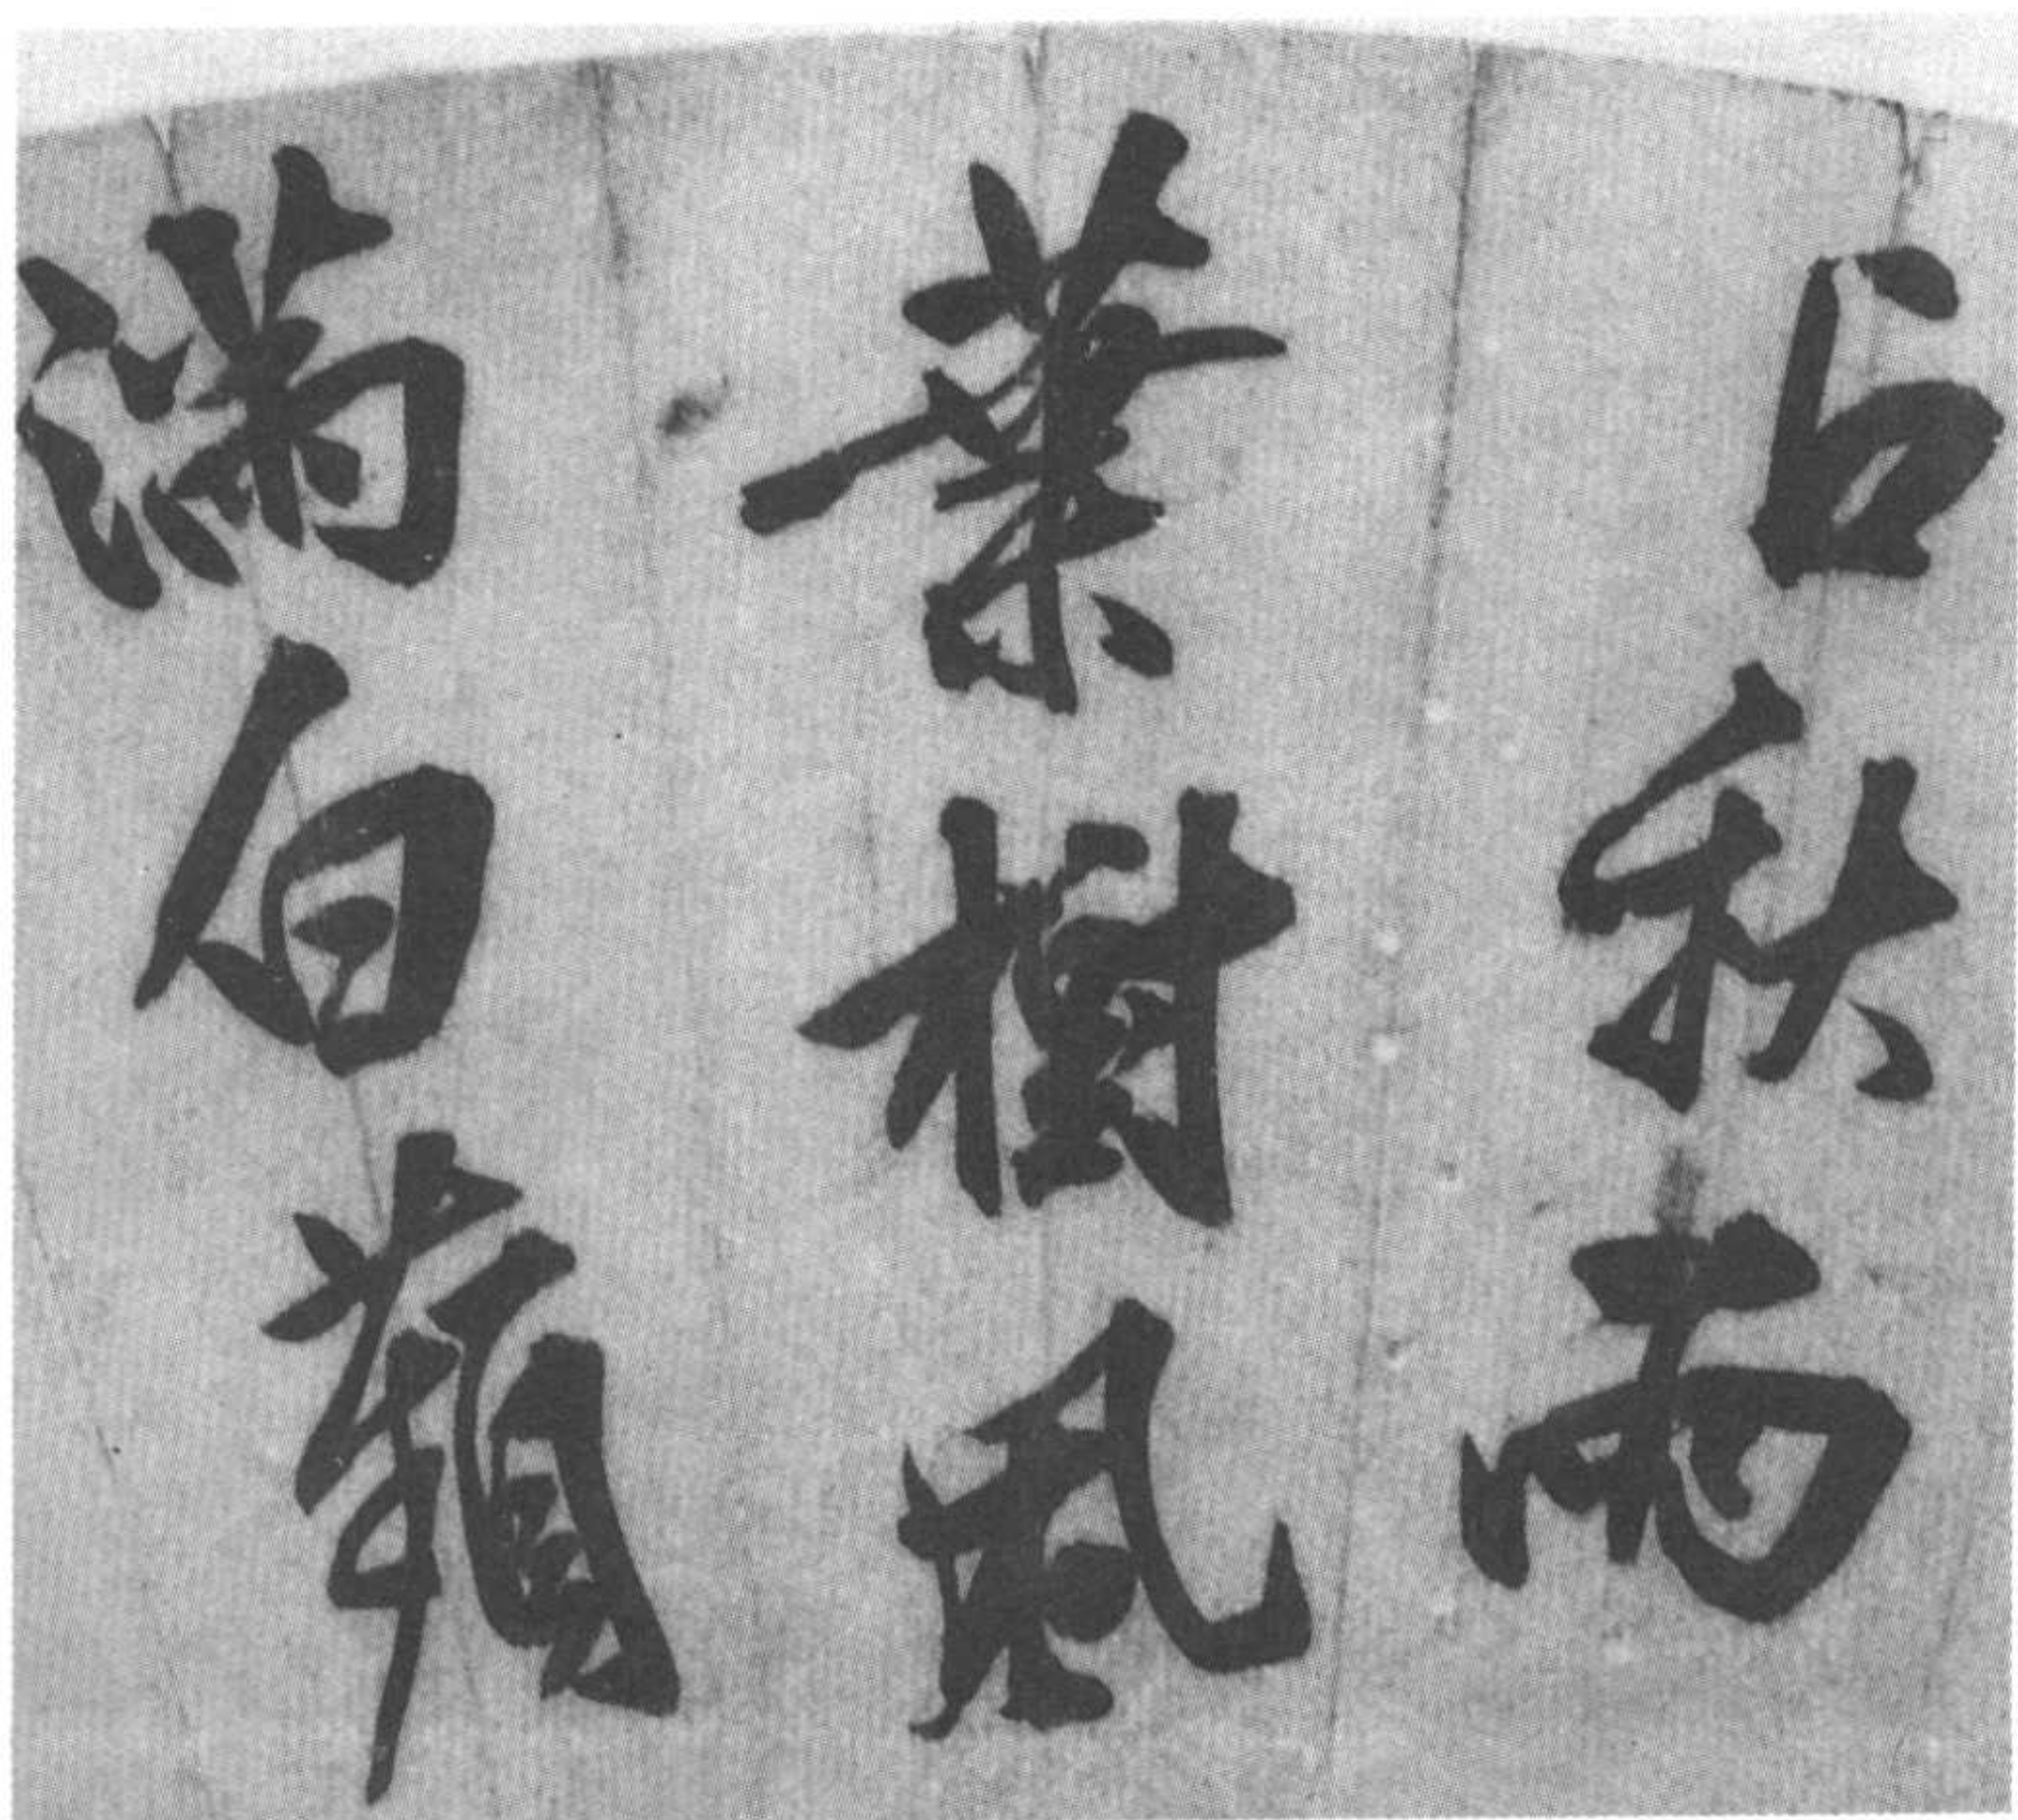 占秋雨
葉樹風
滿白蘋